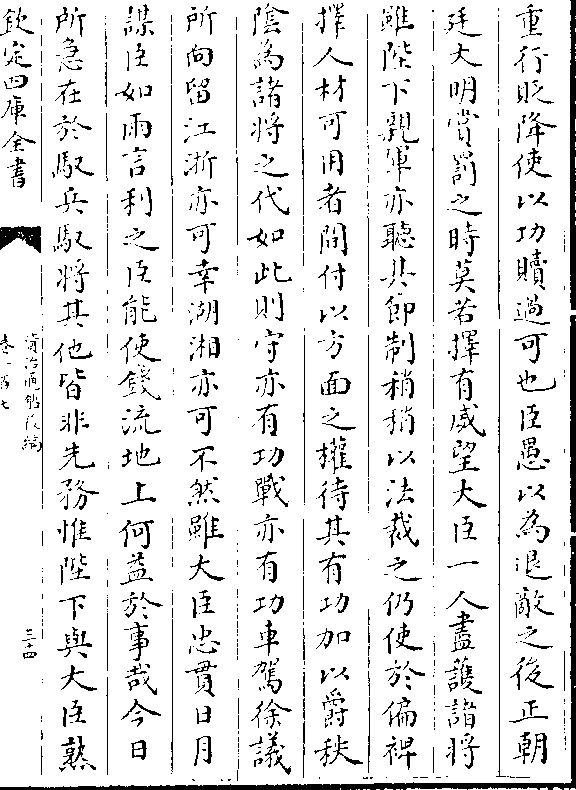 重行貶降使以功贖過可也臣愚以為退敵之後正朝
廷大明賞罰之時莫若擇有威望大臣一人盡護諸將
雖陛下親軍亦聽其節制稍稍以法裁之仍使於偏裨
擇人材可用者間付以方面之權待其有功加以爵秩
陰為諸將之代如此則守亦有功戰亦有功車駕徐議
所向留江浙亦可幸湖湘亦可不然雖大臣忠貫日月
謀臣如雨言利之臣能使錢流地上何益於事哉今日
所急在於馭兵馭將其他皆非先務惟陛下與大臣熟
欽定四庫全書
資治通鑑後編
卷一百七
三十四